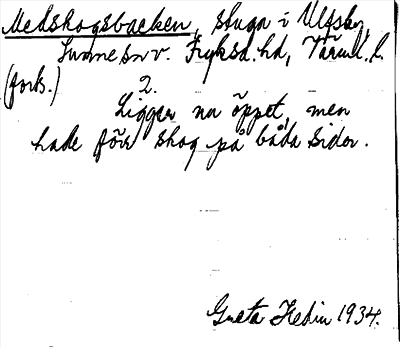 Medskogsbacken, stuga i Ulfsby,
Sunne sn v. Fryksd. hd, Värml. l.
(fork.) 2.
Ligger nu öppet, men
hade förr skog på båda sidor.
Greta Hedin 1934.